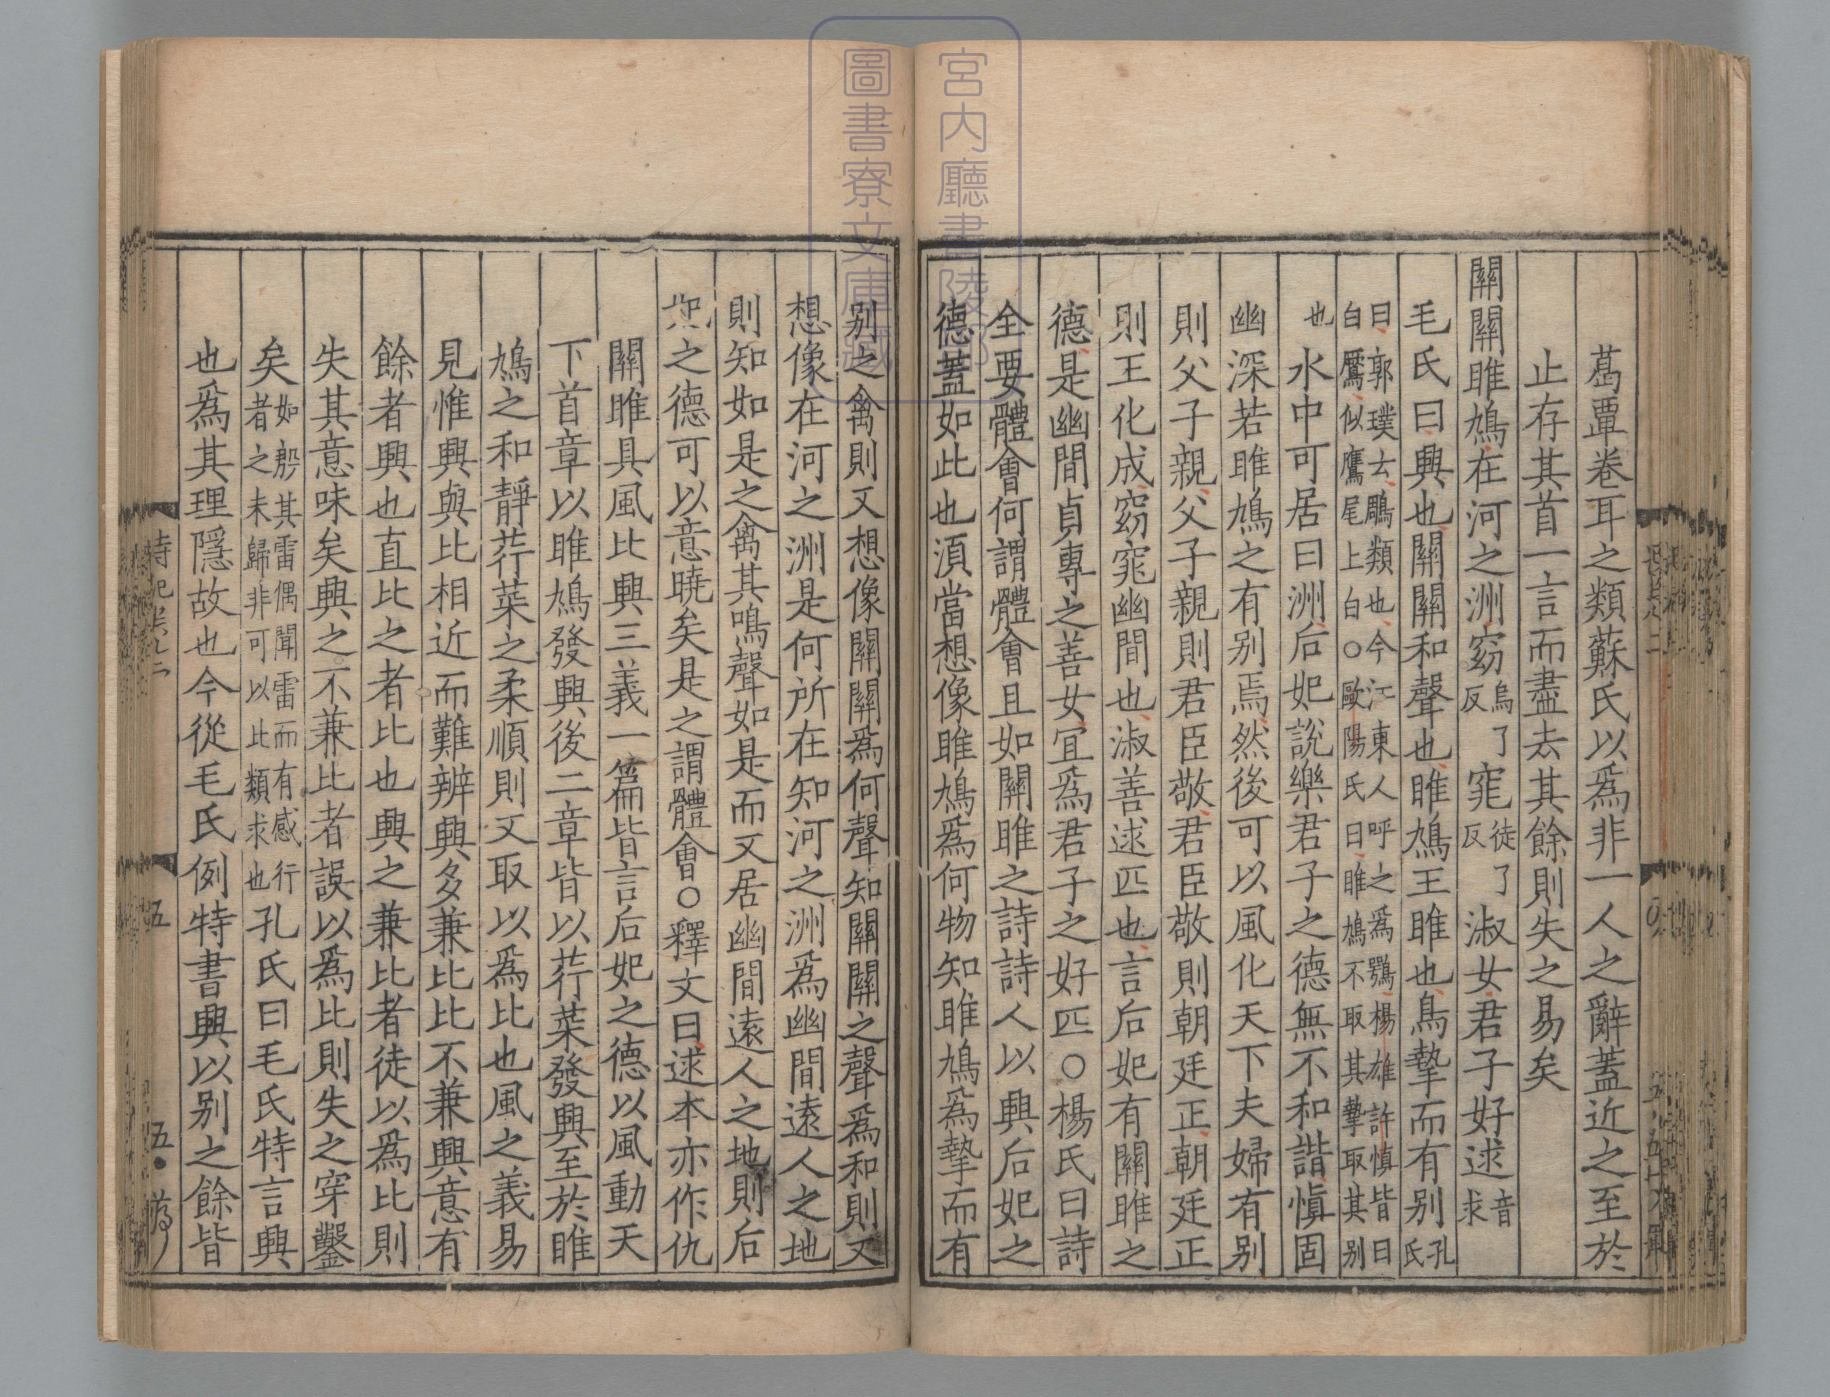 葛覃卷耳之類蘇氏以爲非一人之辭蓋近之至於
止存其首一言而盡去其餘則失之易矣
關關雎鳩在河之洲窈烏了反窕徒了反淑女君子好逑音求
毛氏曰興也關關和聲也雎鳩王雎也鳥摯而有别孔氏
曰郭璞云鵰類也今江東人呼之爲鶚楊雄許愼皆曰
白鷢似鷹尾上白○歐陽氏曰雎鳩不取其摯取其别
也水中可居曰洲后妃說樂君子之德無不和諧愼固
幽深若雎鳩之有别焉然後可以風化天下夫婦有别
則父子親父子親則君臣敬君臣敬則朝廷正朝廷正
則王化成窈窕幽閒也淑善逑匹也言后妃有關雎之
德是幽閒貞專之善女宜爲君子之好匹○楊氏曰詩
全要體會何謂體會且如關雎之詩詩人以興后妃之
德蓋如此也須當想像雎鳩爲何物知雎鳩爲摯而有
别之禽則又想像關關爲何聲知關關之聲爲和則又
想像在河之洲是何所在知河之洲爲幽閒遠人之地
則知如是之禽其鳴聲如是而又居幽閒遠人之地則后
妃之德可以意曉矣是之謂體會○釋文曰逑本亦作仇
關雎具風比興三義一篇皆言后妃之德以風動天
下首章以雎鳩發興後二章皆以荇菜發興至於雎
鳩之和靜荇菜之柔順則又取以爲比也風之義易
見惟興與比相近而難辨興多兼比比不兼興意有
餘者興也直比之者比也興之兼比者徒以爲比則
失其意味矣興之不兼比者誤以爲比則失之穿鑿
矣如殷其雷偶聞雷而有感行者之未歸非可以此類求也孔氏曰毛氏特言興
也爲其理隱故也今從毛氏例特書興以别之餘皆
詩記卷二
五
五
宮内廳書陵部
圖書寮文庫藏